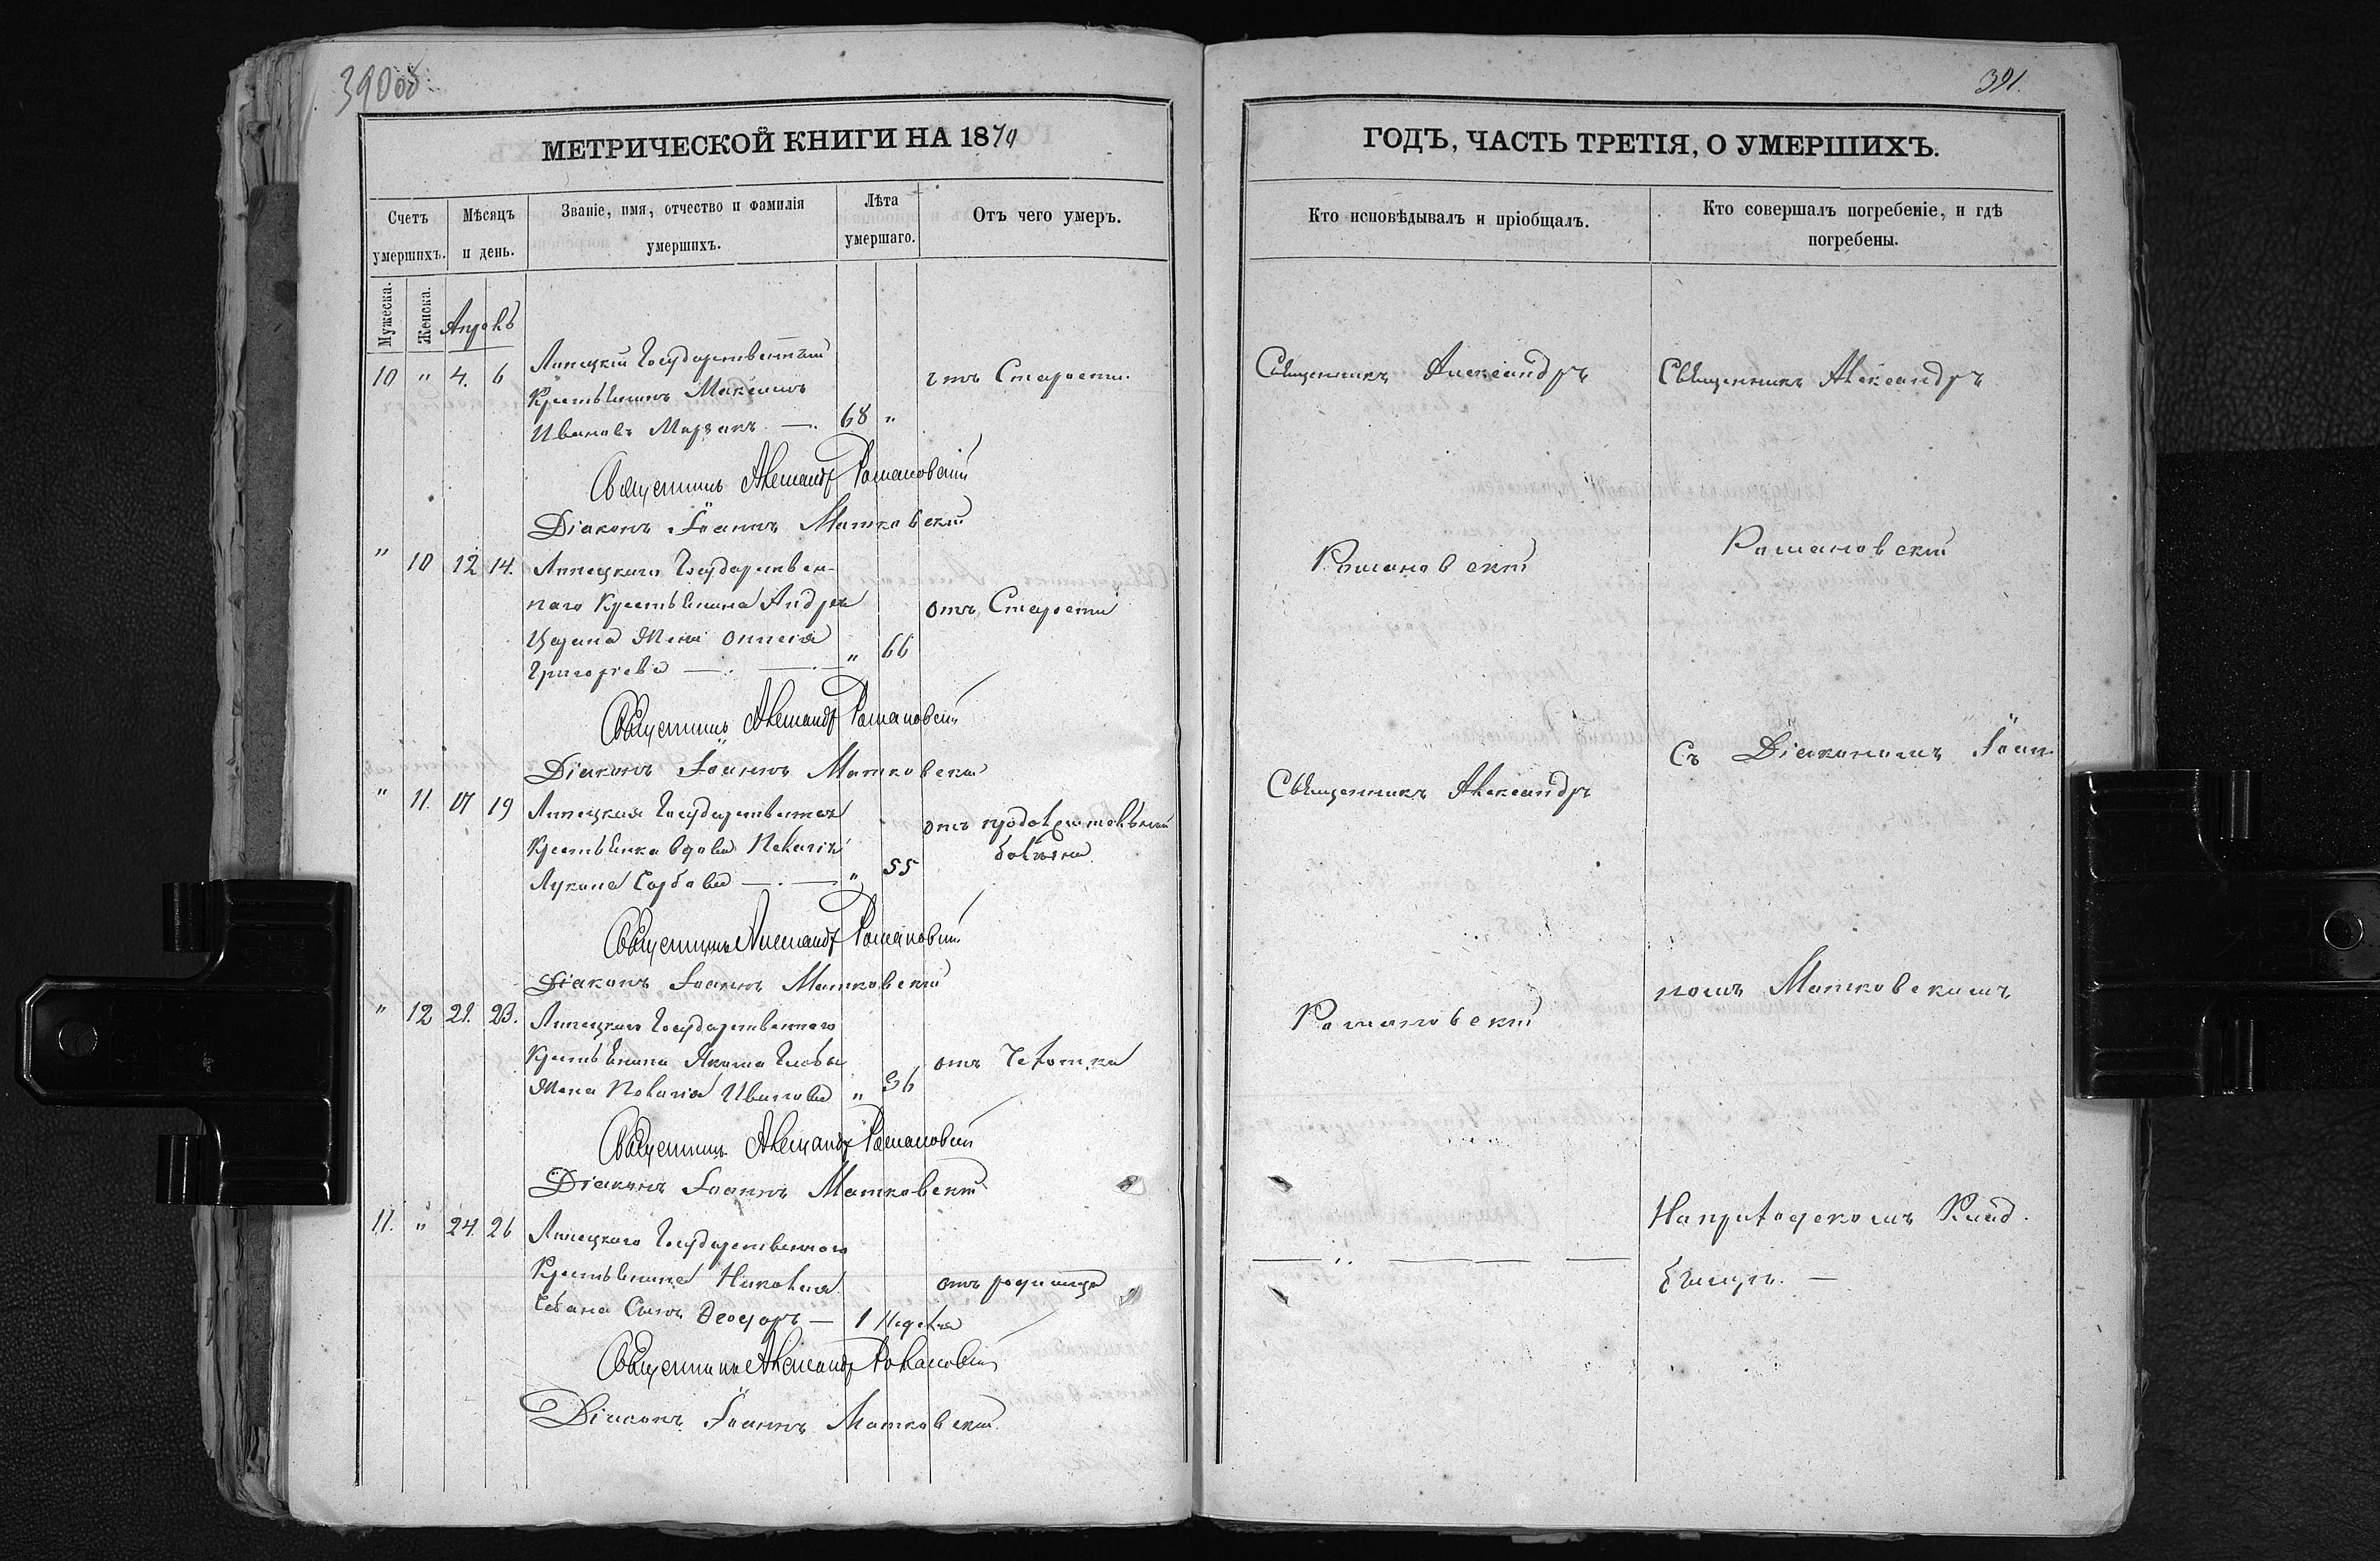 390об
МЕТРИЧЕСКОЙ КНИГИ НА 1870
Счетъ умершихъ.
Мѣсяцъ и день.
Званіе, имя, отчество и фамилія умершихъ.
Лѣта умершаго.
Отъ чего умеръ.
Мужеска.
Женска.
Апрель
10 " 4. 6 Липецкій Государственный
Крестьянинъ Максимъ
Ивановъ Мардарь —. 68 "
отъ Старости.
Священникъ Александръ Романовскій
Діаконъ Іоаннъ Матковскій
" 10 12 14. Липецкаго Государствен-
наго Крестьянина Андрея
Цэрана Жена Онисія
Григорьева —. — " 66
отъ Старости
Священникъ Александръ Романовскій
Діаконъ Іоаннъ Матковскій
" 11. 17 19 Липецкая Государственная
Крестьянка вдова Пелагія
Лукина Сорбова —. — " 55
отъ продолжительной
болѣзни
Священникъ Александръ Романовскій
Діаконъ Іоаннъ Матковскій
" 12 21. 23. Липецкаго Государственнаго
Крестьянина Якима Глобы
Жена Пелагія Иванова " 36
отъ Чахотки
Священникъ Александръ Романовскій
Діаконъ Іоаннъ Матковскій
11. " 24. 26 Липецкаго Государственнаго
Крестьянина Николая
Чебана Сынъ Ѳеодоръ — 1 Неделя
отъ родимца
Священникъ Александръ Романовскій
Діаконъ Іоаннъ Матковскій.
391.
ГОДЪ, ЧАСТЬ ТРЕТІЯ, О УМЕРШИХЪ.
Кто исповѣдывалъ и пріобщалъ.
Кто совершалъ погребеніе, и гдѣ погребены.
Священникъ Александръ
Романовскій
Священникъ Александръ
Романовскій
Священникъ Александръ
Романовскій
съ Діакономъ Іоан-
номъ Матковскимъ
На приходскомъ Клад-
бищѣ. —